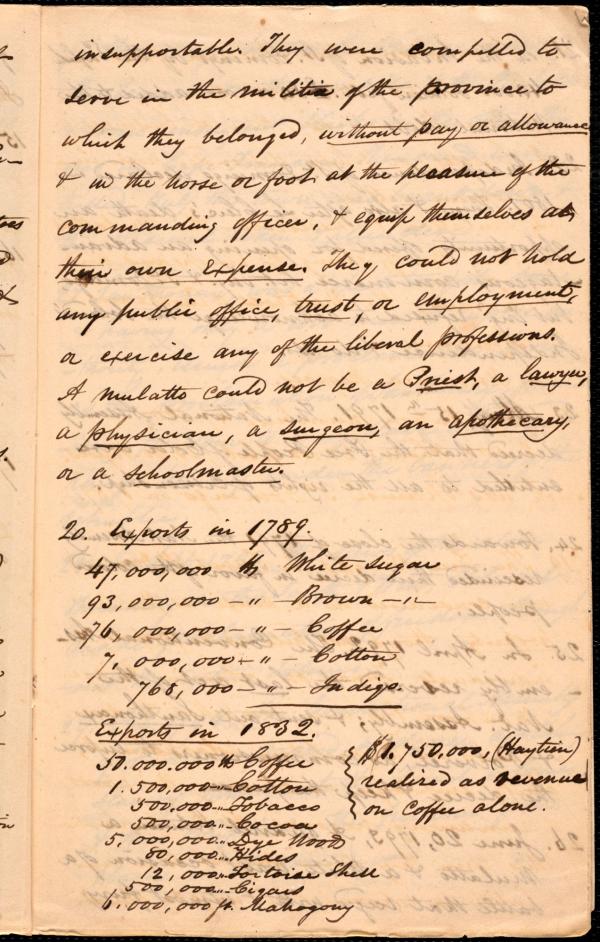 insupportable. They were compelled to
serve in the militia of the province to
which they belonged, without pay or allowance
& in the horse or foot at the pleasure of the
commanding officer, & equip themselves at
their own expense. They could not hold
any public office, trust, or employment,
or exercise any of the liberal professions.
A mulatto could not be a Priest, a lawyer,
a physician, a surgeon, an apothecary,
or a schoolmaster.
20. Exports in 1789.
47,000,000 lb White sugar
93,000,000 - " - Brown - " -
76,000,000 - " - Coffee
7,000,000 - " - Cotton
768,000 - " - Indigo.
Exports in 1832.
50.000.000 lb Coffee
1.500,000 - " - Cotton
500,000 - " - Tobacco
500,000 - " - Cocoa
5,000,000 - " - Dye Wood
80,000 - " - Hides
12,000 - " - Tortoise Shell
500,000 - " - Cigars
6.000,000 ft. Mahogony
$1.750,000, (Haytien)
realized as revenue
on coffee alone.